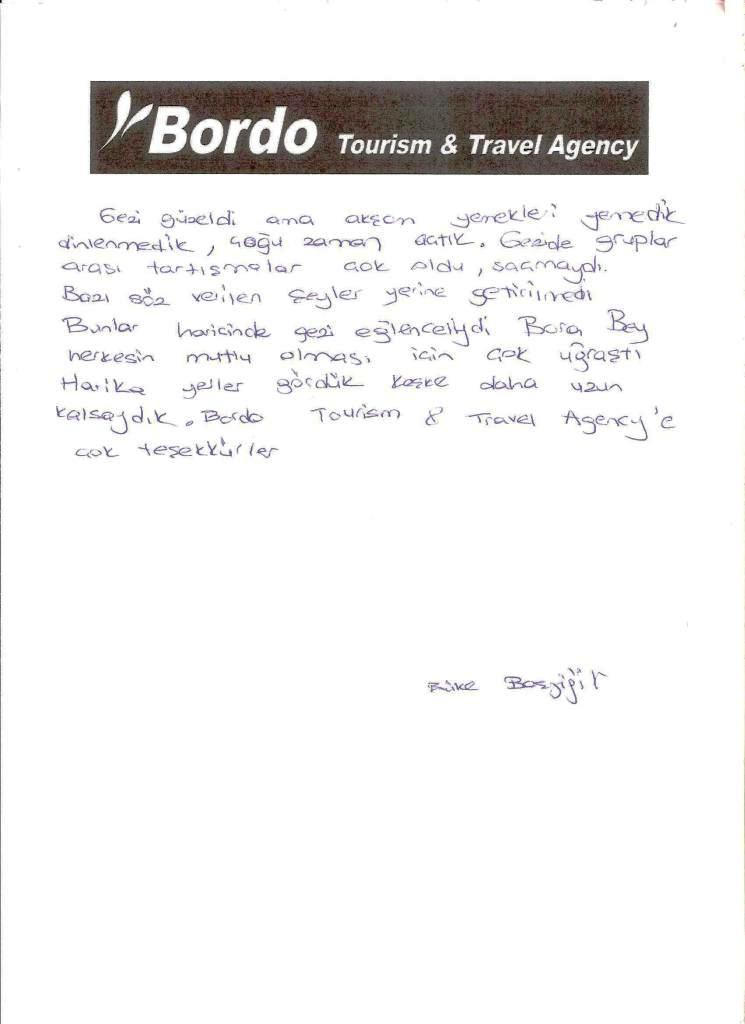 Bordo Tourism & Travel Agency
Gezi güzeldi ama akşam yemekleri yemedik
dinlenmedik, çoğu zaman açtık. Gezide gruplar
arası tartışmalar çok oldu, saçmaydı.
Bazı söz verilen şeyler yerine getirilmedi
Bunlar haricinde gezi eğlenceliydi Bora Bey
herkesin mutlu olması için çok uğraştı
Harika yerler gördük keşke daha uzun
kalsaydık. Bordo Tourism & Travel Agency'e
çok teşekkürler
Büke Başyiğit